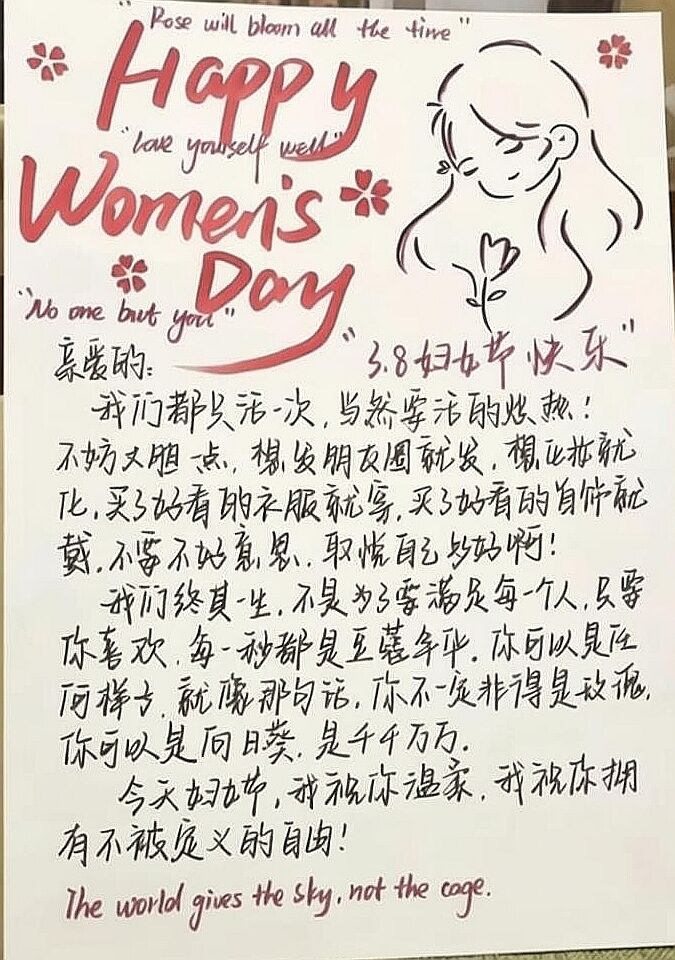 "Rose will bloom all the time"
Happy
"Love yourself well"
Women's
Day
"No one but you"
"3.8妇女节快乐"
亲爱的:
我们都只活一次,当然要活的炽热!
不妨大胆一点,想发朋友圈就发,想化妆就
化,买了好看的衣服就穿,买了好看的首饰就
戴,不要不好意思,取悦自己多好啊!
我们终其一生,不是为了要满足每一个人,只要
你喜欢,每一秒都是豆蔻年华.你可以是任
何样子,就像那句话,你不一定非得是玫瑰,
你可以是向日葵,是千千万万.
今天妇女节,我祝你温柔,我祝你拥
有不被定义的自由!
The world gives the sky, not the cage.